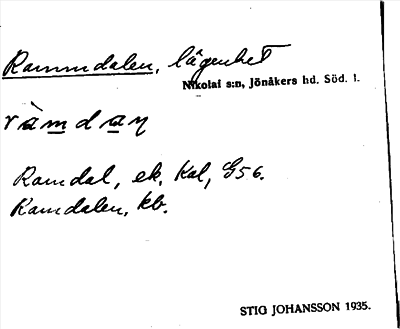 Rammdalen, lägenhet
Nikolai s:n, Jönåkers hd. Söd. l.
Ramdal, ek. Kal, G56.
Ramdalen, kb.
STIG JOHANSSON 1935.